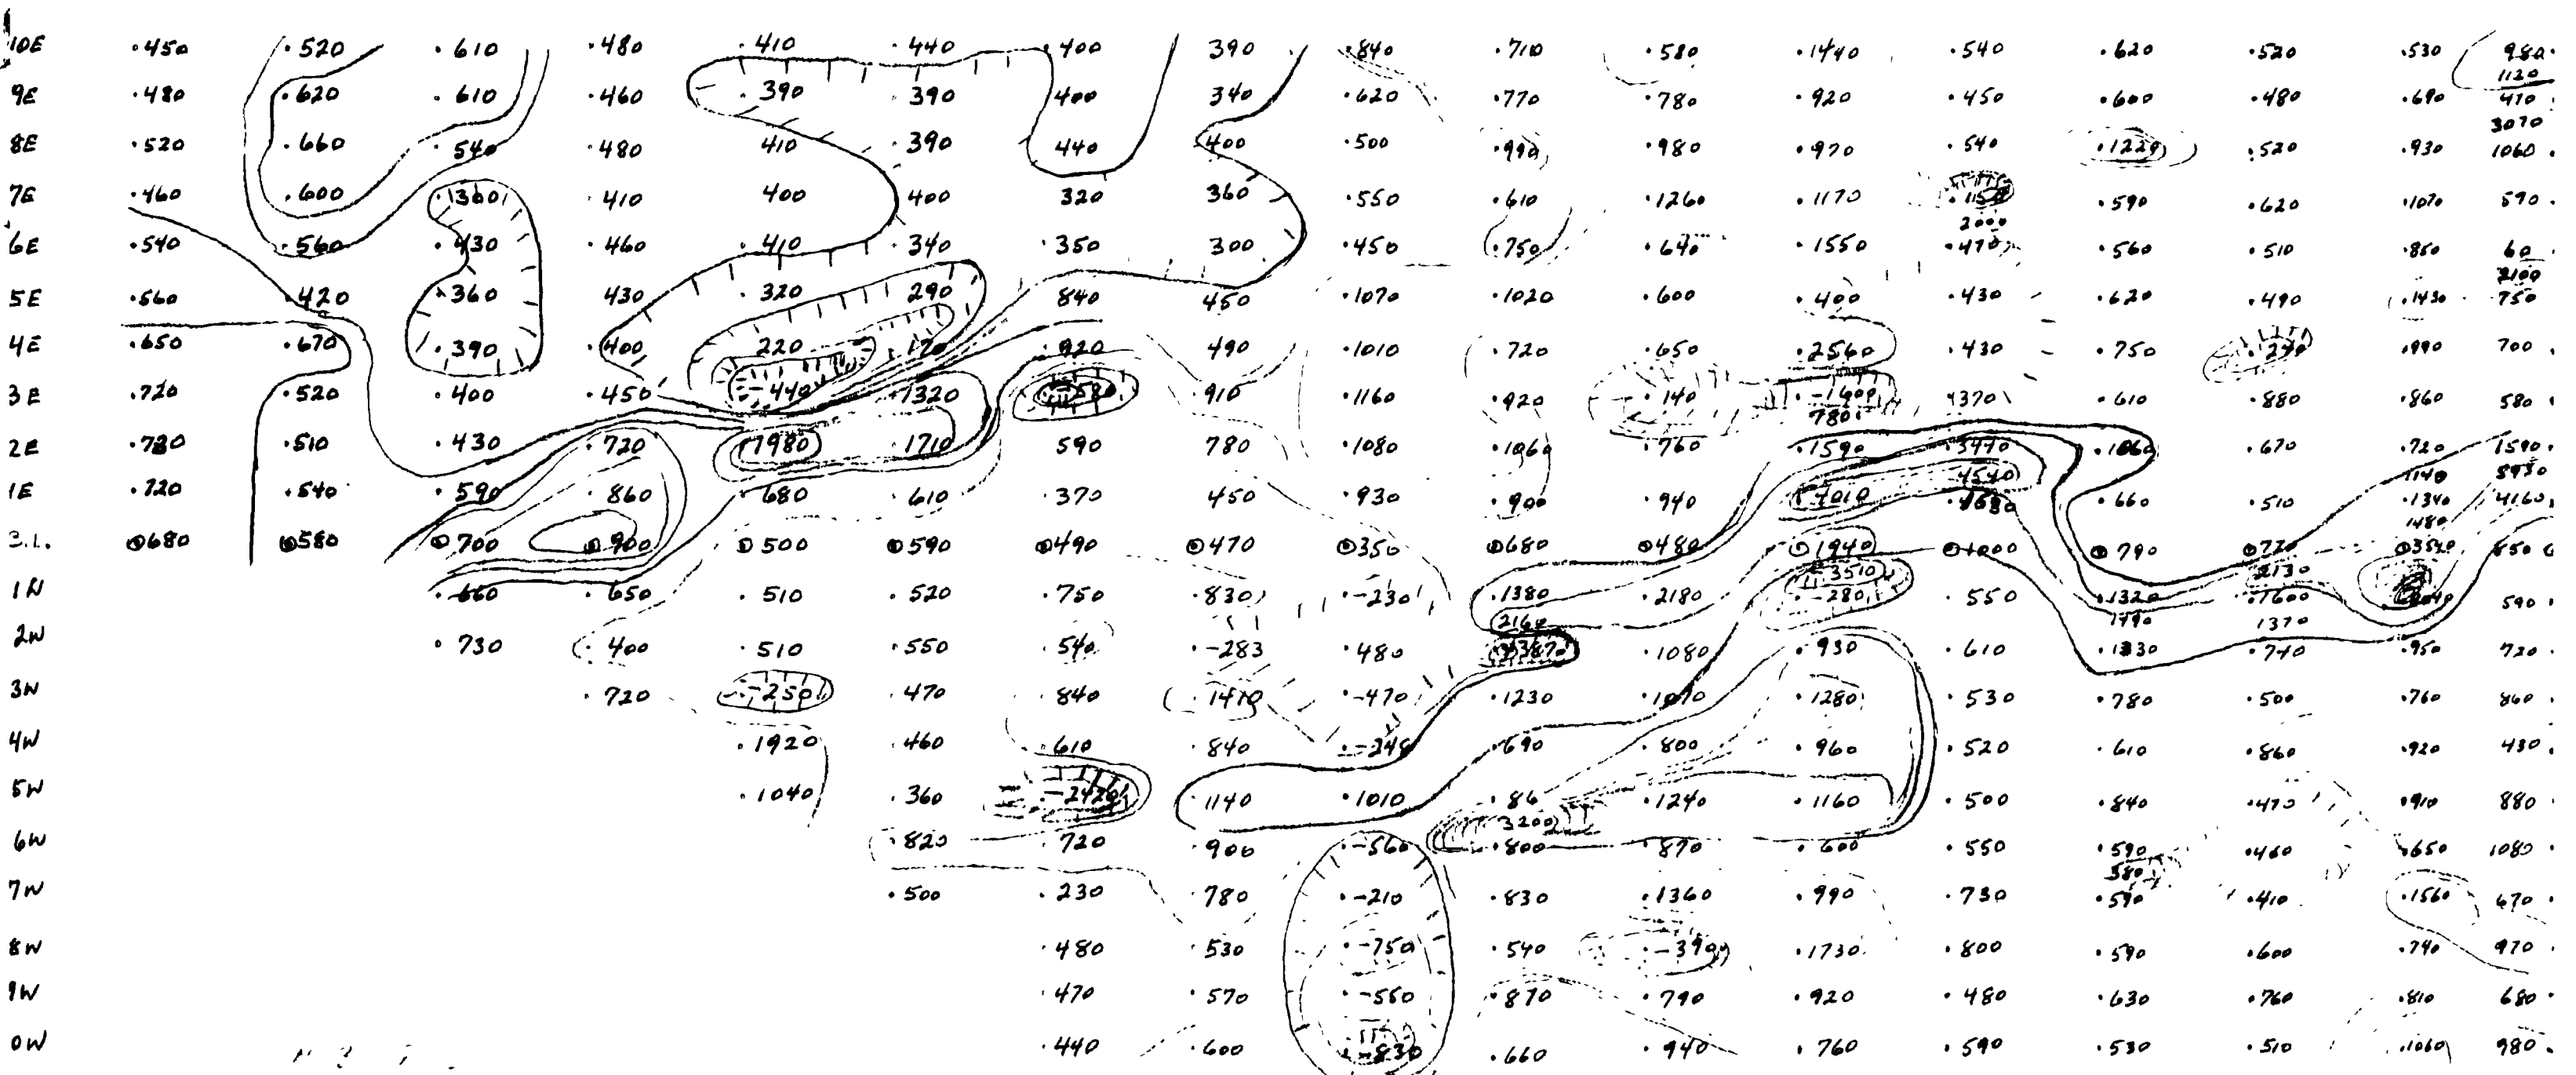 10E .450 .520 .610 .480 .410 .440 .400 390 .840 .710 .580 .1440 .540 .620 .520 .530 980.
1120
9E .480 .620 .610 .460 .390 .390 400 340 .620 .770 .780 .920 .450 .600 .480 .690 470
3070
8E .520 .660 .540 .480 410 .390 440 400 .500 .990 .980 .970 .540 .1220 .520 .930 1060.
7E .460 .600 .360 .410 400 400 320 360 .550 .610 .1260 .1170 .1150 .590 .620 .1070 590.
2000
6E .540 .560 .430 .460 .410 .340 .350 300 .450 .750 .640 .1550 .470 .560 .510 .850 60.
2100
5E .560 .420 .360 430 .320 290 840 450 .1070 .1020 .600 .400 .430 .620 .490 .1430 750
4E .650 .670 .390 .400 220 .170 .920 490 .1010 .720 .650 .2560 .430 .750 .240 .990 700.
3E .720 .520 .400 .450 -440 .1320 -580 .910 .1160 .920 .140 .-1400 1370 .610 .880 .860 580.
780
2E .780 .510 .430 .720 1980 .1710 590 780 .1080 .1060 .760 .1590 .3440 .1060 .670 .720 1590.
4540 1140 8930
1E .720 .540 .590 .860 .680 .610 .370 450 .930 .900 .940 .4010 .1680 .660 .510 .1340 4160.
1480
680 580 700 900 500 590 490 470 350 680 480 1940 1000 790 720 850
3510 2130
1W .660 .650 .510 .520 .750 .830 .-230 .1380 .2180 .-280 .550 .1320 .1600 590.
2160 1790 1370
2W .730 .400 .510 .550 .540 .-283 .480 .1080 .930 .610 .1330 .740 .950 720.
3W .720 -250 .470 .840 .1410 .-470 .1230 .1070 .1280 .530 .780 .500 .760 860.
4W .1920 .460 .610 .840 .-248 .690 .800 .960 .520 .610 .860 .920 430.
5W .1040 .360 -2420 .1140 .1010 .86 .1240 .1160 .500 .840 .470 .910 880.
3200
6W .820 .720 .900 .-560 .800 .870 .600 .550 .590 .460 .650 1080.
380
7W .500 .230 .780 .-210 .830 .1360 .990 .730 .590 .410 .1560 670.
8W .480 .530 .-750 .540 .-390 .1730 .800 .590 .600 .740 970.
9W .470 .570 .-550 .870 .790 .920 .480 .630 .760 .810 680.
0W .440 .600 .-830 .660 .940 .760 .590 .530 .510 .1060 980.